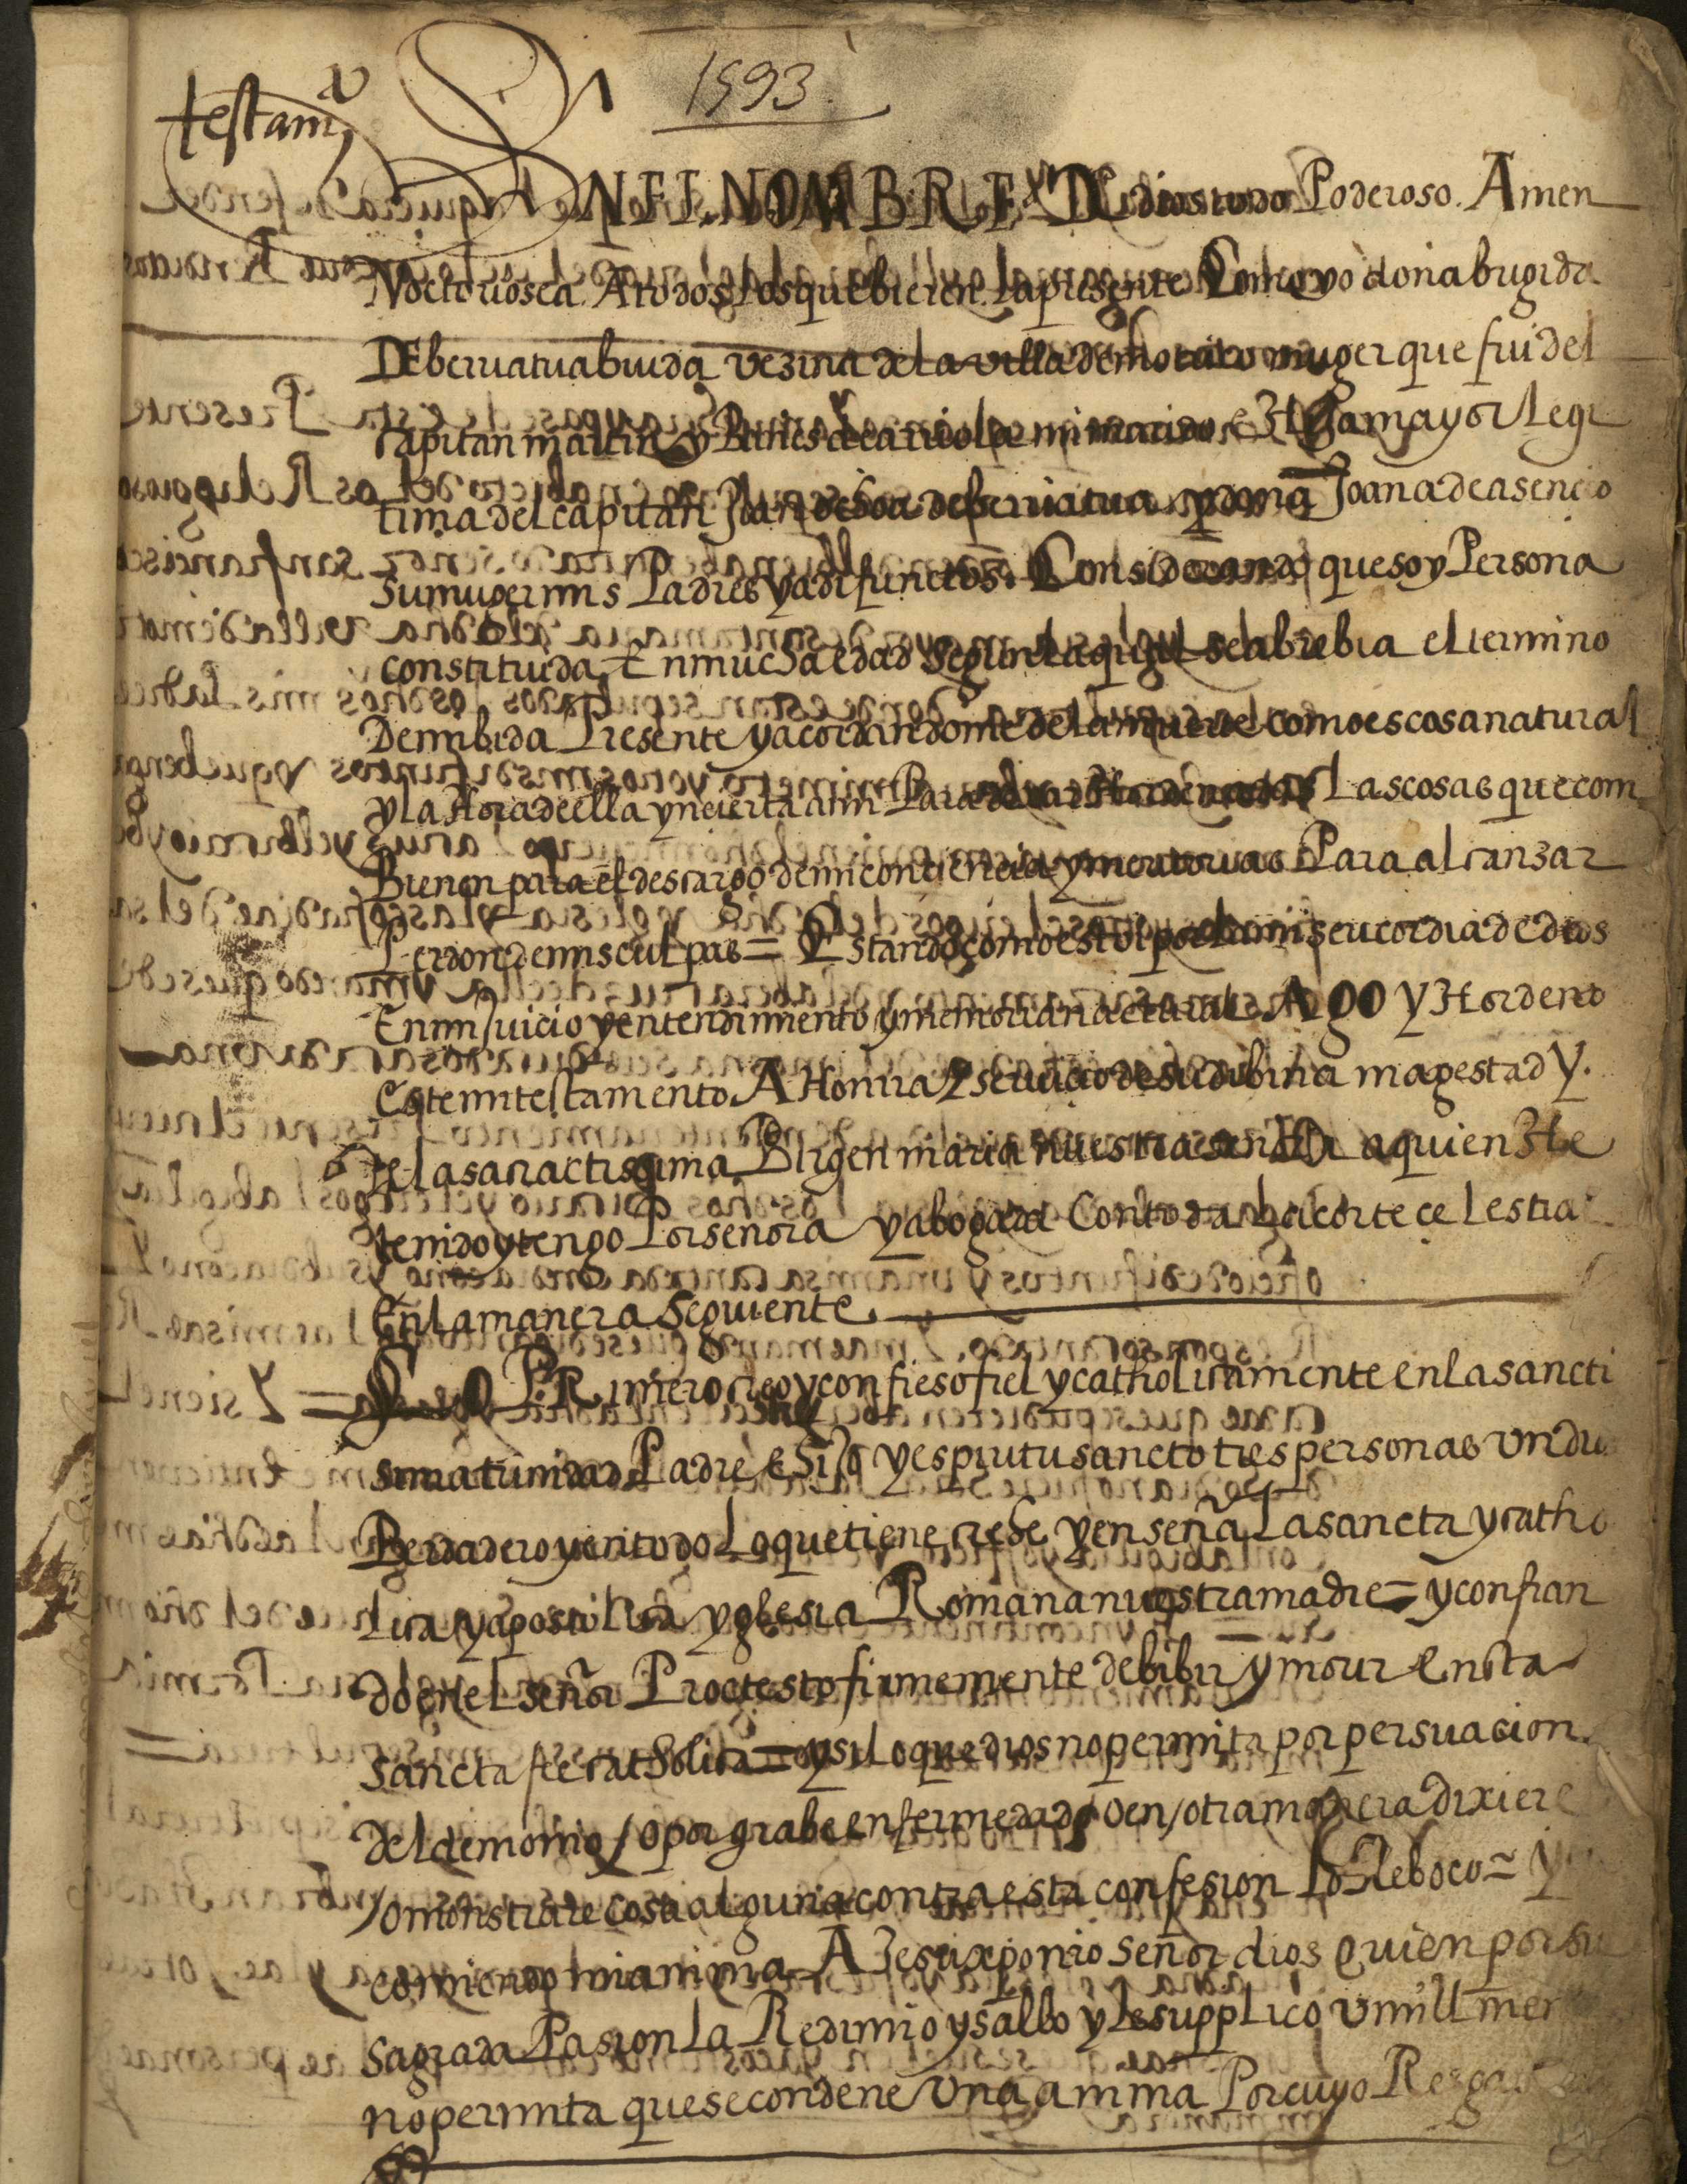 testamº
1593
EN EL NOMBRE De dios todo Poderoso. Amen
Notorio sea A todos Los que bieren La presente Como yo doña brigida
DE berriatua biuda vezina de la villa de motrico muger que fui del
capitan martin y Bañes de carriola mi marido e Hija mayor Legi
tima del capitan Joan de berriatua y doña Joana de asencio
su muger mis Padres ya difunctos. Considerando que soy Persona
constituida En mucha edad Segun la qual se abrebia el termino
De mi bida Presente y acordandome de la muerte como es cosa natural
y la Hora de ella yncierta a mi Para Las cosas que com
Bienen para el descargo de mi conciencia y meritorias Para alcanzar
Perdon de mis culpas = Estando como estoi por la misericordia de dios
En mi Juicio y entendimiento y memoria natural. Ago y Hordeno
este mi testamento. A Honrra y seruicio de su dibina magestad y.
de la sanactissima Birgen maria nuestra señora a quien He
tenido y tengo Por señora y abogada Con toda La corte celestial
En la manera Seguiente.
PRimero creo y confieso fiel y catholicamente en la sancti
sima trinidad Padre e Hijo y espiritu sancto tres personas un dios
Berdadero y en todo Lo que tiene crehe y enseña La sancta y catho
Lica y apostolica yglesia Romana nuestra madre = y confian
do en el señor Proctesto firmemente de bibir y morir en esta
sancta fee catholica = y si Lo que dios no permita por persuasion
del demonio / o por grabe enfermedad / o en / otra manera dixiere
/ o monstrare cosa alguna contra esta confesion Lo Reboco = y
comiendo mi anima A Jesuxpo nro señor dios quien por su
sagrada Pasion La Redimio y salbo y le supplico umillmente
no permita que se condene Una anima Por cuyo Resga